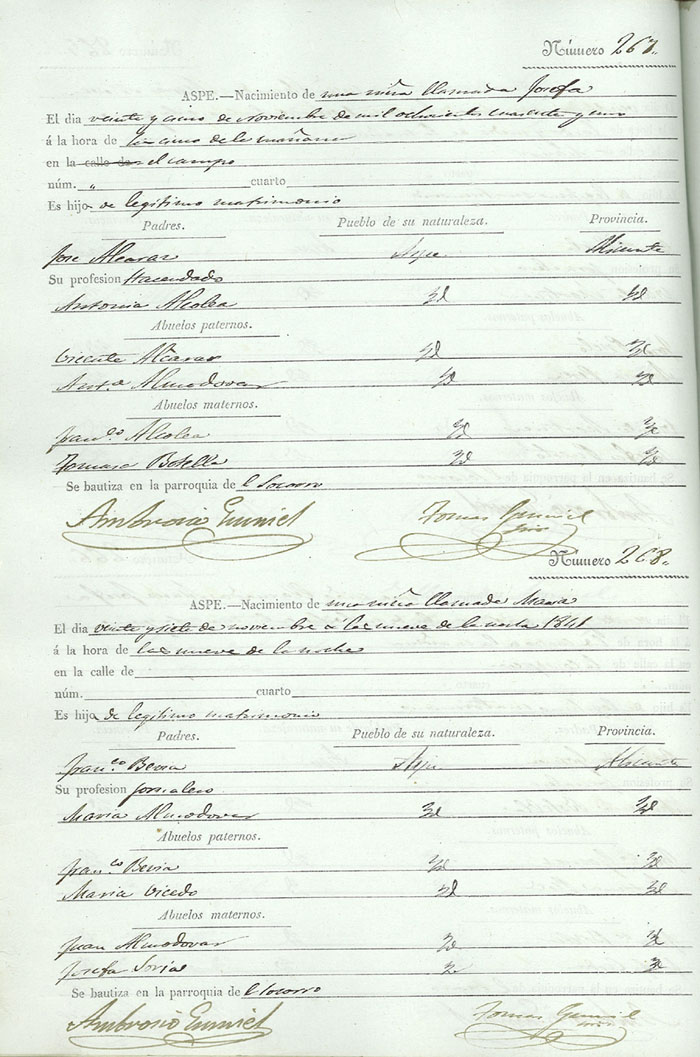 Número 267.
ASPE.—Nacimiento de una niña llamada Josefa
El dia veinte y cinco de Noviembre de mil ochocientos cuarenta y uno
á la hora de las cinco de la mañana
en la calle de el campo
núm. " cuarto
Es hija de legitimo matrimonio
Padres. Pueblo de su naturaleza. Provincia.
Jose Alcaraz Aspe Alicante
Su profesion Hacendado
Antonia Alcolea Id Id
Abuelos paternos.
Vicente Alcaraz Id Id
Ant.a Almodovar Id Id
Abuelos maternos.
Fran.co Alcolea Id Id
Tomasa Botella Id Id
Se bautiza en la parroquia de el Socorro
Ambrosio Tomas
Número 268.
ASPE.—Nacimiento de una niña llamada Maria
El dia veinte y siete de noviembre a las nueve de la noche 1841
á la hora de las nueve de la noche
en la calle de
núm. cuarto
Es hija de legitimo matrimonio
Padres. Pueblo de su naturaleza. Provincia.
Fran.co Bevia Aspe Alicante
Su profesion jornalero
Maria Almodovar Id Id
Abuelos paternos.
Fran.co Bevia Id Id
Maria Vicedo Id Id
Abuelos maternos.
Juan Almodovar Id Id
Josefa Soria Id Id
Se bautiza en la parroquia de el Socorro
Ambrosio Tomas